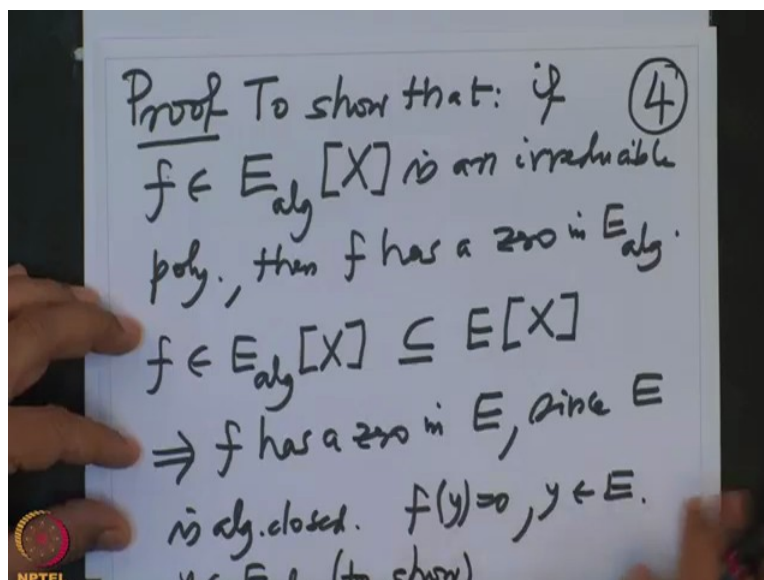 Proof To show that: if ④
f ∈ E_alg [X] is an irreducible
poly., then f has a zero in E_alg.
f ∈ E_alg [X] ⊆ E[X]
⇒ f has a zero in E, since E
is alg. closed. f(y)=0, y ∈ E.
(to show)
NPTEL